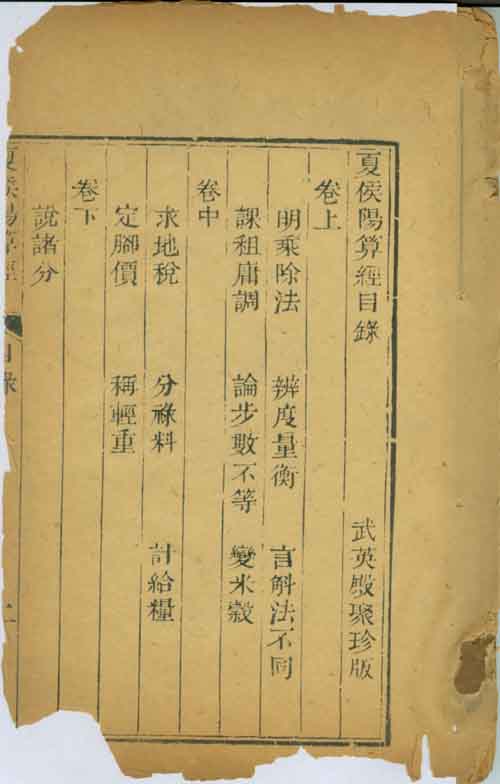 夏侯陽算經目錄 武英殿聚珍版
卷上
明乘除法 辨度量衡 言斛法不同
課租庸調 論步數不等 變米穀
卷中
求地稅 分祿料 計給糧
定腳價 稱輕重
卷下
說諸分
夏侯陽算經 目錄